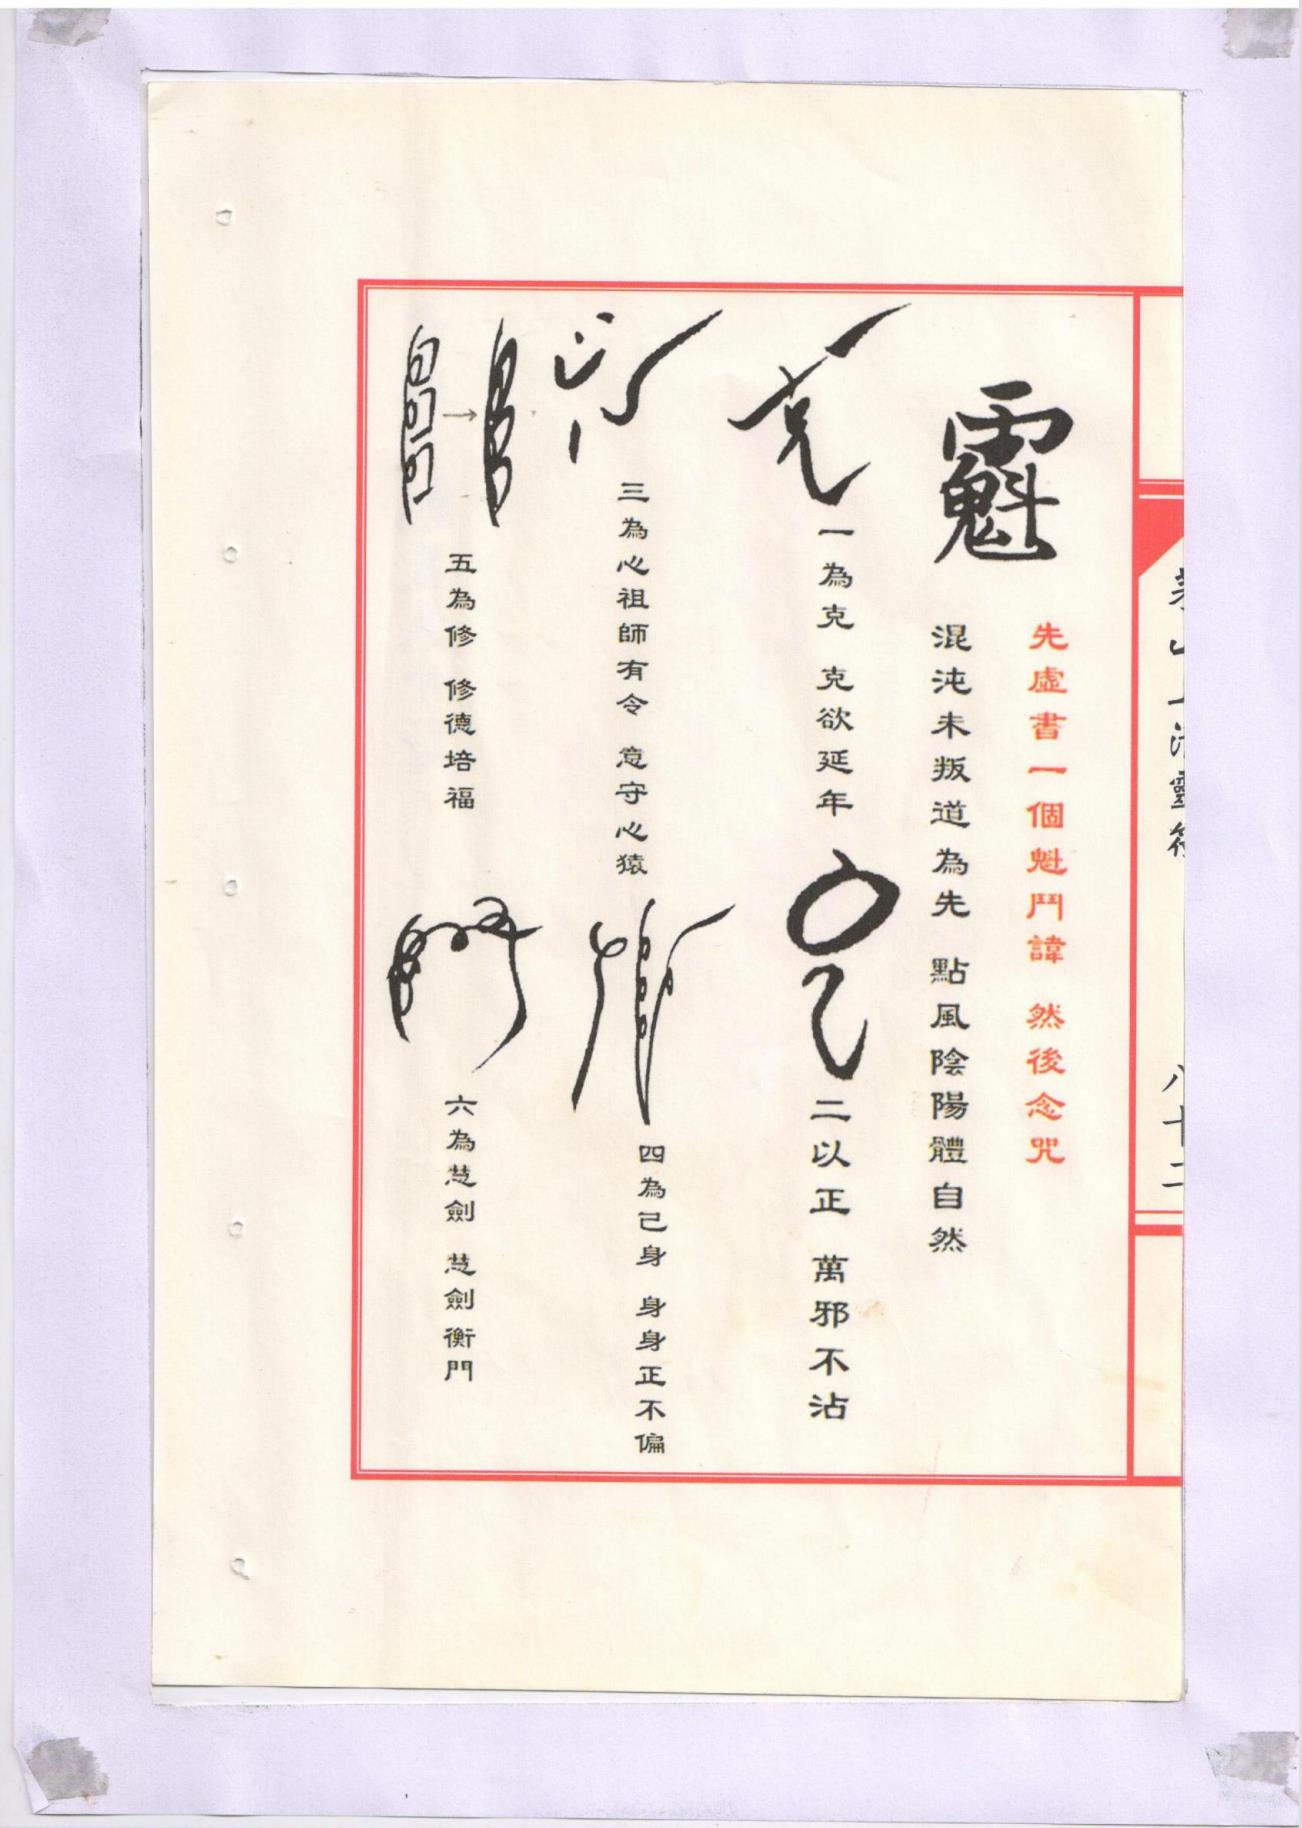 上清靈符
八十二
先虛書一個魁鬥諱 然後念咒
混沌未叛道為先 點風陰陽體自然
克
一為克 克欲延年
二以正 萬邪不沾
三為心祖師有令 意守心猿
四為己身 身身正不偏
五為修 修德培福
六為慧劍 慧劍衡門